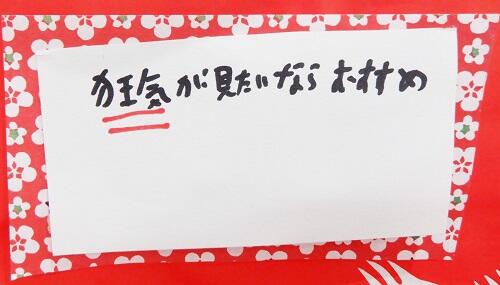 狂気が見たいならおすすめ